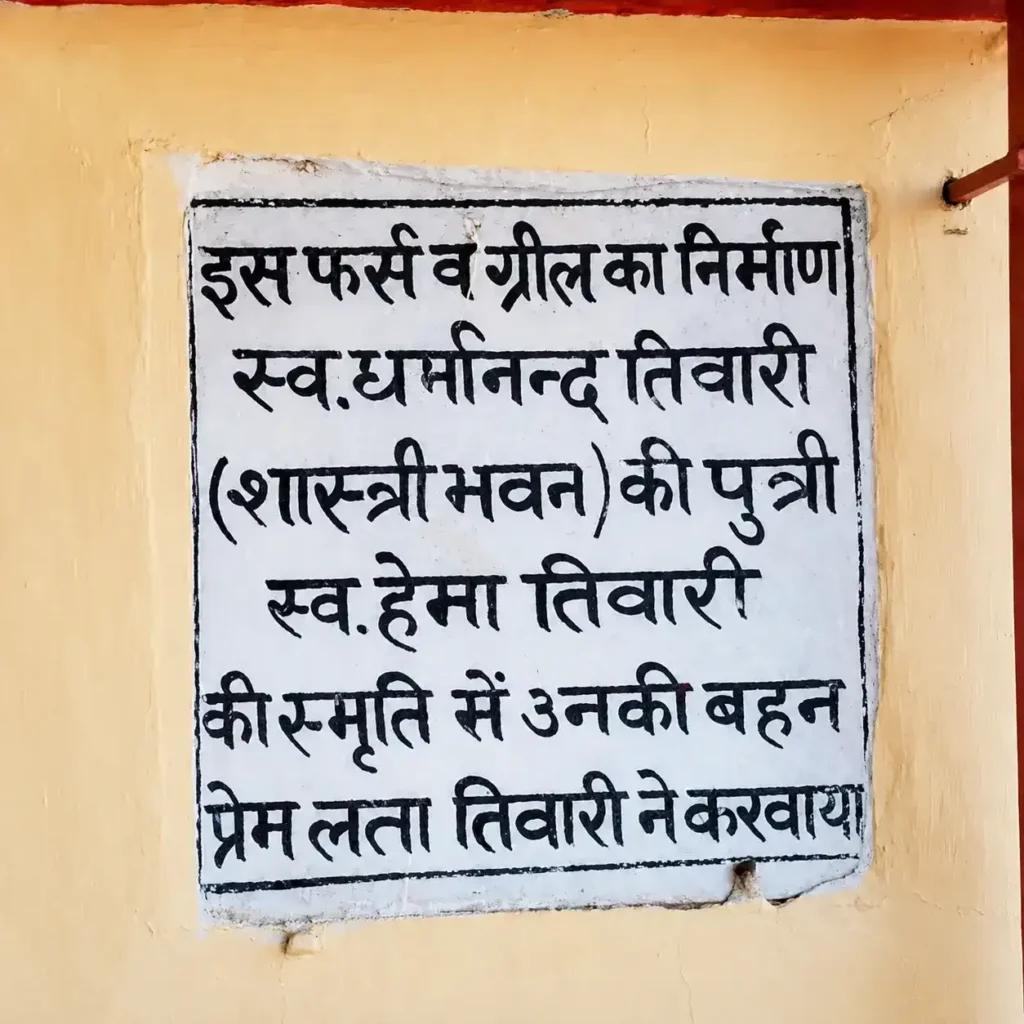 इस फर्स व ग्रील का निर्माण
स्व. धर्मानन्द तिवारी
(शास्त्री भवन) की पुत्री
स्व. हेमा तिवारी
की स्मृति में उनकी बहन
प्रेम लता तिवारी ने करवाया